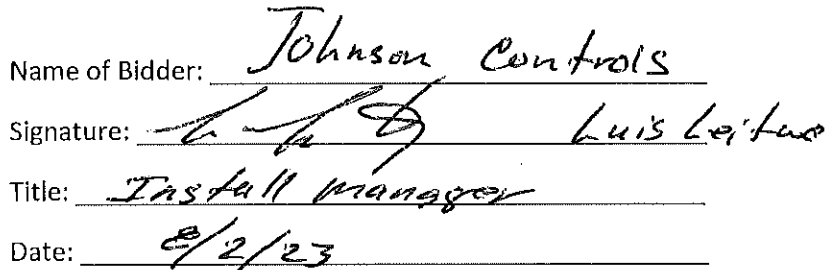 Name of Bidder: Johnson Controls
Signature: Luis
Title: Install manager
Date: 8/2/23